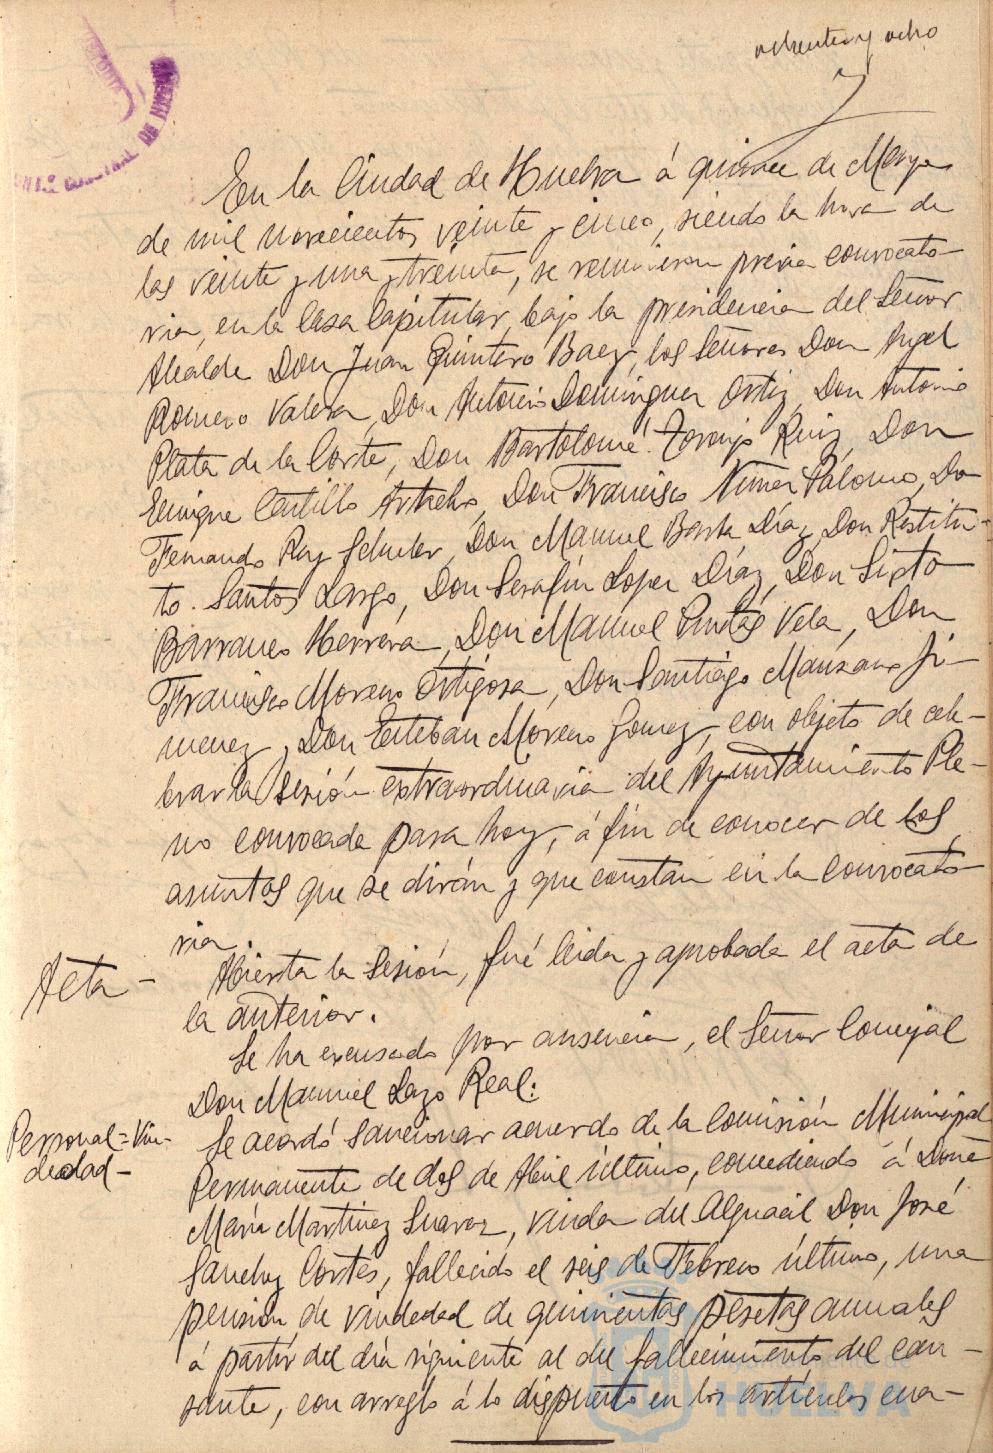 ochenta y ocho
En la Ciudad de Huelva á quince de Mayo
de mil novecientos veinte y cinco, siendo la hora de
las veinte y una y treinta, se reunieron previa convocato-
ria, en la Casa Capitular, bajo la presidencia del Señor
Alcalde Don Juan Quintero Baez, los Señores Don Angel
Romero Valera, Don Antonio Dominguez Ortiz, Don Antonio
Plata de la Corte, Don Bartolomé Toronjo Ruiz, Don
Enrique Castillo Don Francisco Palomo, Don
Fernando Rey Don Manuel Díaz, Don Restitu-
to Santos Largo, Don Serafín Lopez Díaz, Don Sixto
Barranco Herrera, Don Manuel Pintos Vela, Don
Francisco Moreno Ortigosa, Don Santiago Manzano Ji-
menez, Don Esteban Moreno Gomez, con objeto de cele-
brar la Sesión extraordinaria del Ayuntamiento Ple-
no convocada para hoy, á fin de conocer de los
asuntos que se dirán y que constan en la convocato-
ria.
Acta-
Abierta la Sesión, fué leida y aprobada el acta de
la anterior.
Se ha excusado por ausencia, el Señor Concejal
Don Manuel Lazo Real:
Personal=Viu-
dedad-
Se acordó sancionar acuerdo de la Comisión Municipal
Permanente de dos de Abril último, concediendo á Doña
María Martínez Suarez, viuda del Alguacil Don José
Sanchez Cortés, fallecido el seis de Febrero último, una
pensión de viudedad de quinientas pesetas anuales
á partir del día siguiente al del fallecimiento del cau-
sante, con arreglo á lo dispuesto en los artículos cua-
HUELVA